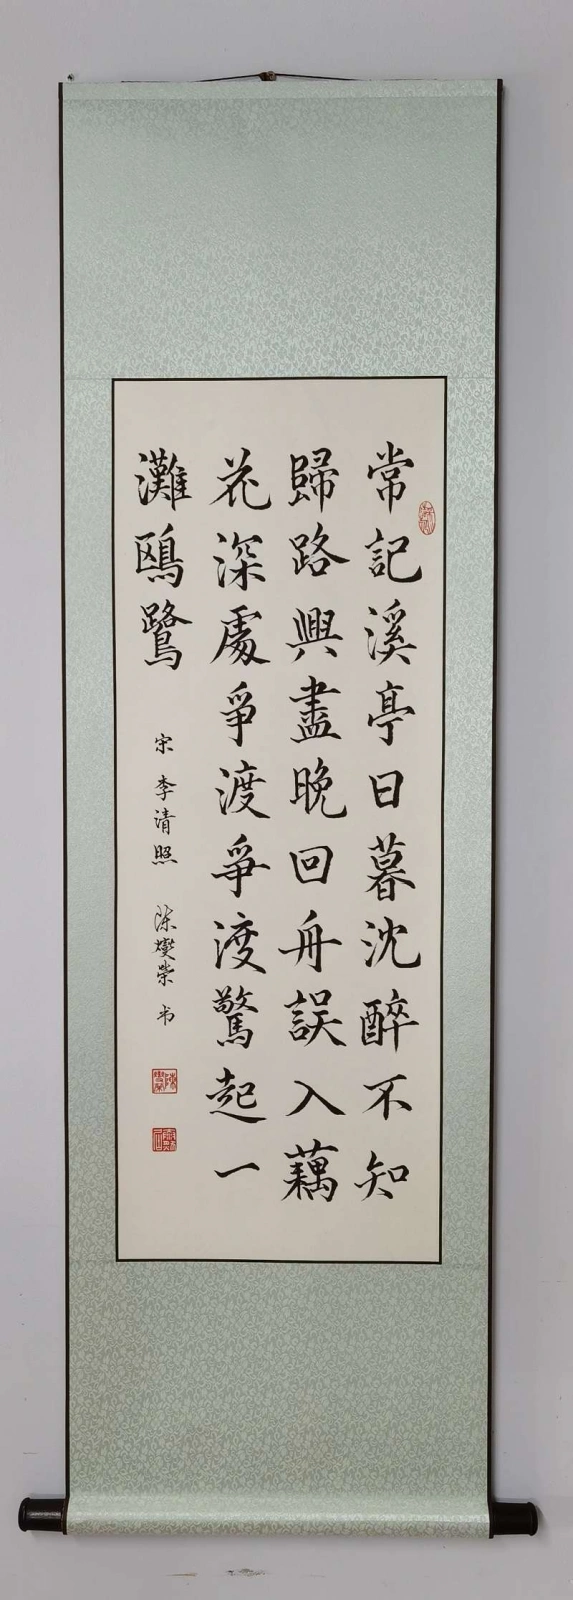 常記溪亭日暮沈醉不知
歸路興盡晚回舟誤入藕
花深處爭渡爭渡驚起一
灘鷗鷺
宋 李清照 陈燮荣 书